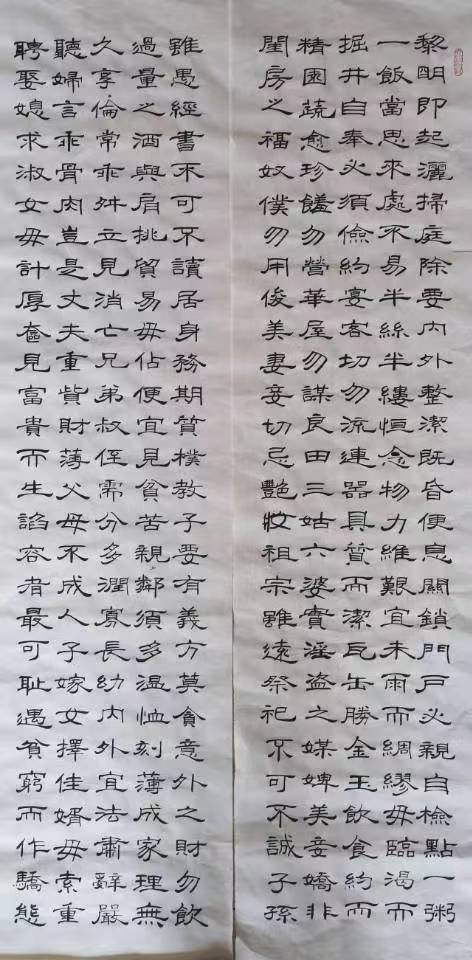 黎明即起灑掃庭除要内外整潔既昏便息關鎖門戶必親自檢點一粥
一飯當思來處不易半絲半縷恒念物力維艱宜未雨而綢繆毋臨渴而
掘井自奉必須儉約宴客切勿流連器具質而潔瓦缶勝金玉飲食約而
精園蔬愈珍饈勿營華屋勿謀良田三姑六婆實淫盜之媒婢美妾嬌非
閨房之福奴僕勿用俊美妻妾切忌艷妝祖宗雖遠祭祀不可不誠子孫
雖愚經書不可不讀居身務期質樸教子要有義方莫貪意外之財勿飲
過量之酒與肩挑貿易毋佔便宜見貧苦親鄰須多温恤刻薄成家理無
久享倫常乖舛立見消亡兄弟叔侄需分多潤寡長幼内外宜法肅辭嚴
聽婦言乖骨肉豈是丈夫重貲財薄父母不成人子嫁女擇佳婿毋索重
聘娶媳求淑女毋計厚奩見富貴而生諂容者最可恥遇貧窮而作驕態